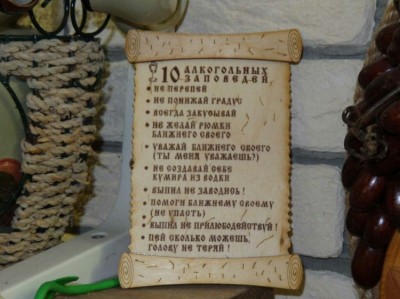 10 АЛКОГОЛЬНЫХ
ЗАПОВЕДЕЙ
• НЕ ПЕРЕПЕЙ
• НЕ ПОНИЖАЙ ГРАДУС
• ВСЕГДА ЗАКУСЫВАЙ
• НЕ ЖЕЛАЙ РЮМКИ
БЛИЖНЕГО СВОЕГО
• УВАЖАЙ БЛИЖНЕГО СВОЕГО
(ТЫ МЕНЯ УВАЖАЕШЬ?)
• НЕ СОЗДАВАЙ СЕБЕ
КУМИРА ИЗ ВОДКИ
• ВЫПИЛ НЕ ЗАВОДИСЬ!
• ПОМОГИ БЛИЖНЕМУ СВОЕМУ
(НЕ УПАСТЬ)
• ВЫПИЛ НЕ ПРИЛЮБОДЕЙСТВУЙ!
• ПЕЙ СКОЛЬКО МОЖЕШЬ,
ГОЛОВУ НЕ ТЕРЯЙ!